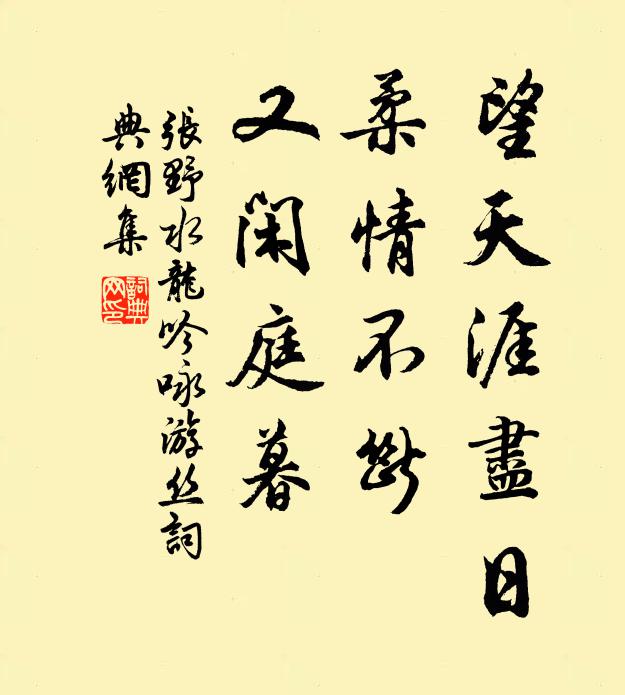 望天涯盡日
柔情不斷
又閑庭暮
張野水龍吟咏游丝詞
典網集
詞典網印